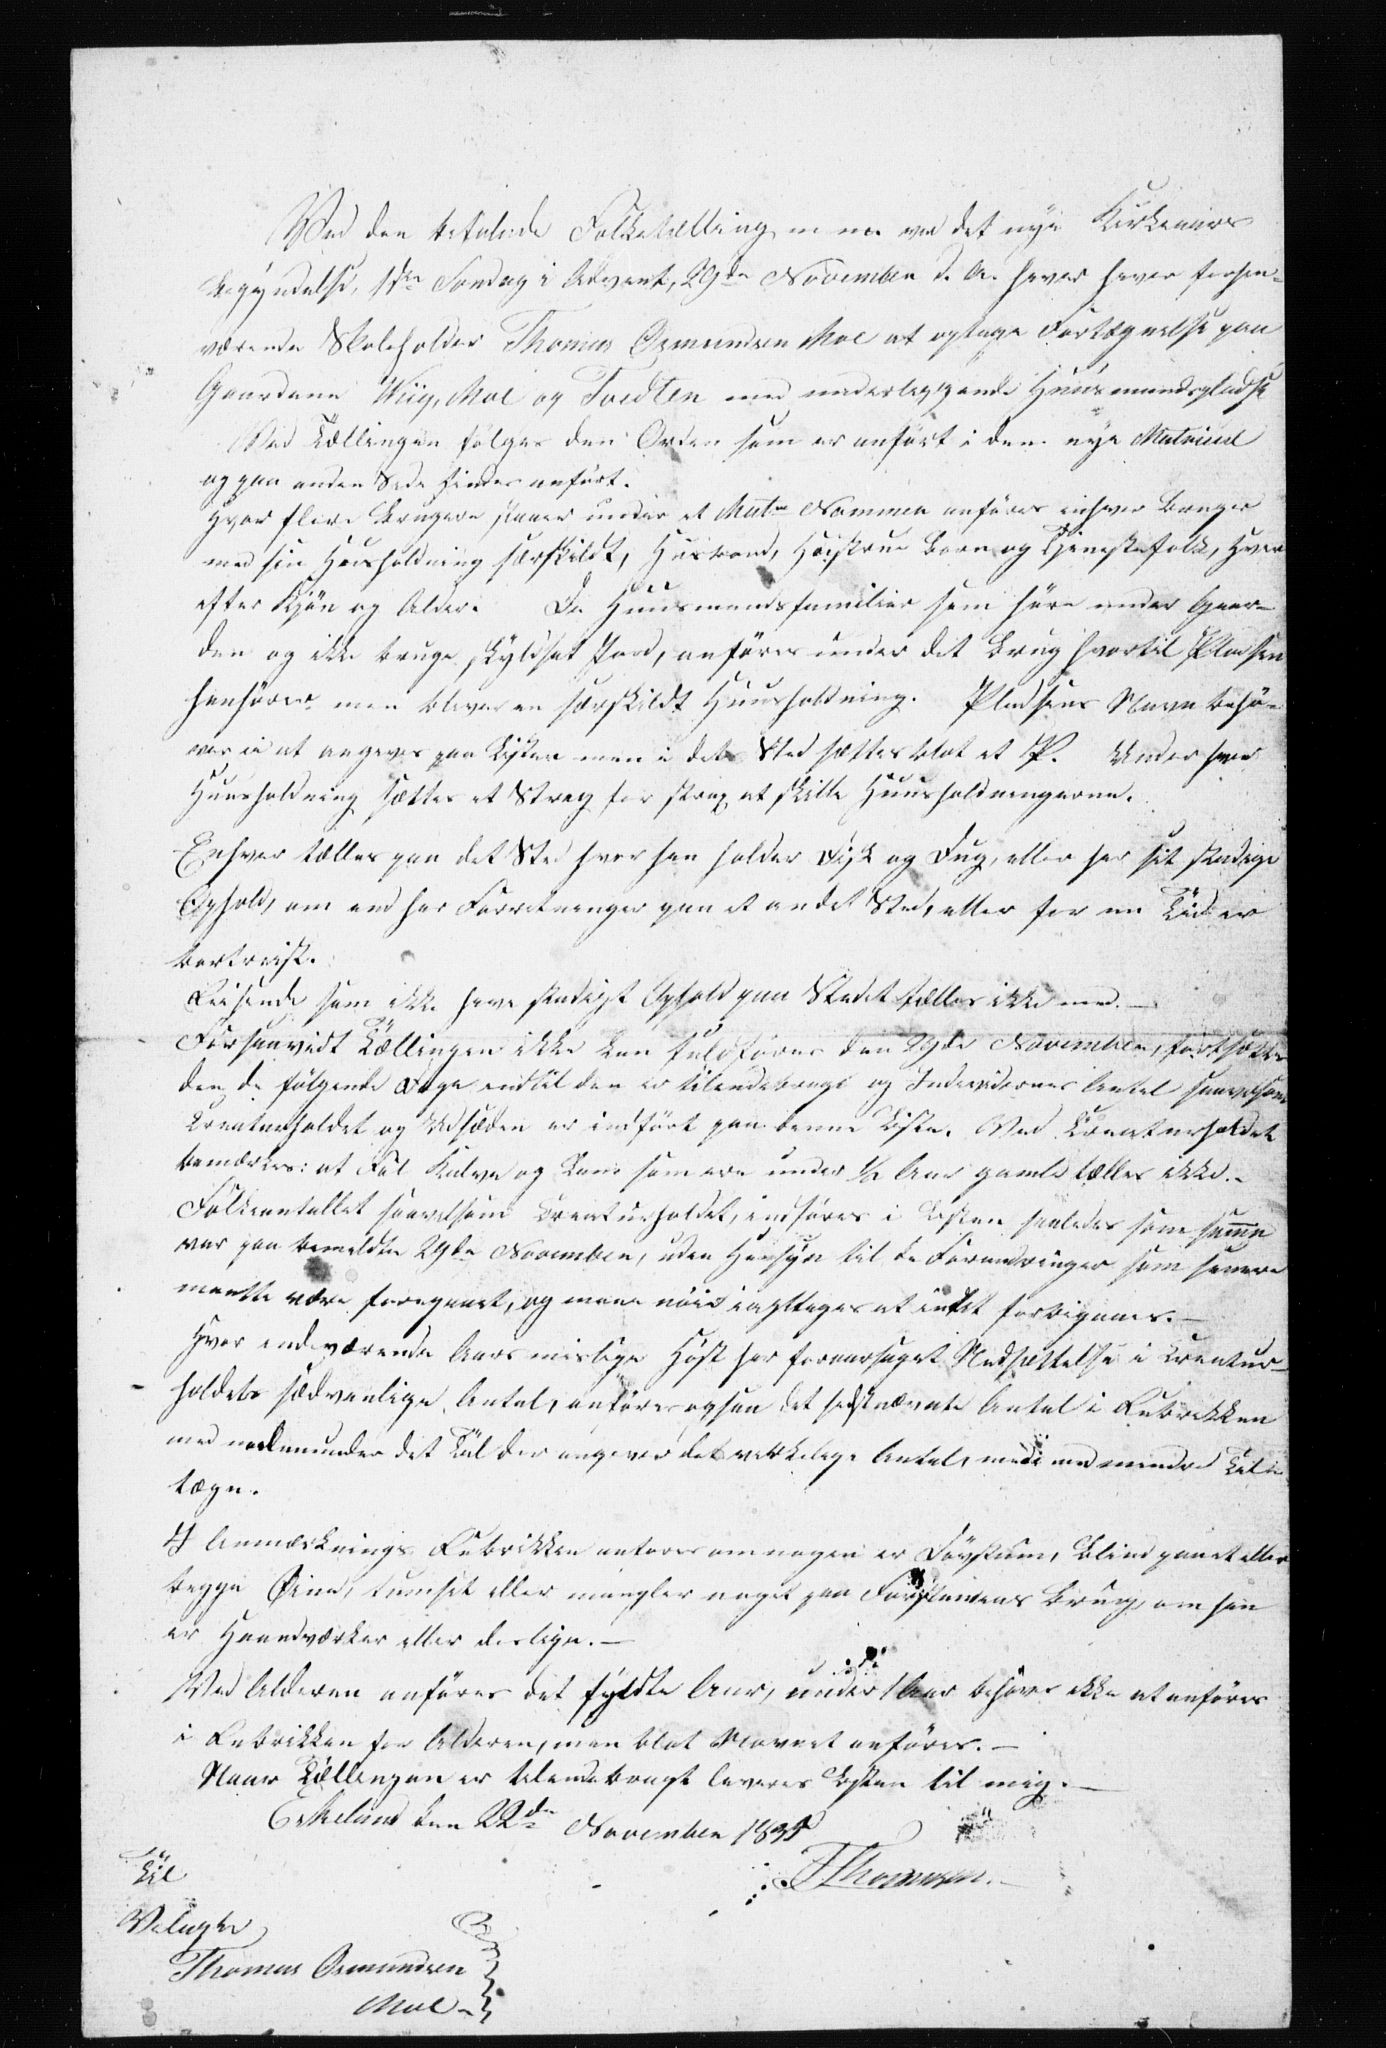 Ved den befalede Folketælling m. m. ved det nye Kirkeaars
Begyndelse, 1ste Søndag i Advent, 29de November d. A. haver herver forhen-
værende Skoleholder Thomas Osmundsen Moe at optage Fortegnelse paa
Gaardene Wiig, Moe og Tvedten med underliggende Huusmandspladse
Ved Tællingen følges den Orden som er anført i den nye Matricul
og paa anden Side findes anført.
Hvor flere Brugere staaer under et Matr Nommer anføres enhver Bruger
med sin Huusholdning særskildt, Husbond, Hustrue Børn og Tjenestefolk, hver
efter Kjøn og Alder. De Huusmandsfamilier som høre under Gaar-
den og ikke bruge skyldsat Jord, anføres under det Brug hvortil Pladsen
henhører men bliver en særskildt Huusholdning. Pladsens Navn behø-
ver ei at angives paa Listen men i dets Sted sættes blot et P. Under hver
Huusholdning sættes et Streg for strax at skille Huusholdningerne.
Enhver tælles paa det Sted hvor han holder Disk og Dug, eller har sit stadige
Ophold, om end har Forretninger paa et andet Sted, eller for en Tid er
bortreist.
Reisende som ikke have stadigt Ophold paa Stedet tælles ikke med.—
Forsaavidt Tællingen ikke kan fuldføres den 29de November, fortsættes
den de følgende Dage indtil den er tilendebragt og Individernes Antal saavelsom
Creaturholdet og Udsæden er indført paa denne Liste. Ved Creaturholdet
bemærkes: at Føl Kalve og Lam som ere under ½ Aar gamle tælles ikke.-
Folkeantallet saavelsom Creaturholdet, indføres i Listen saaledes som samme
var paa bemeldte 29de November, uden Hensyn til de Forandringer som senere
maatte være foregaaet, og maae nøie iagttages at intet forbigaaes.—
Hvor indeværende Aars mislige Høst har foraarsaget Nedsættelse i Creatur-
holdets sædvanlige Antal, anføres ogsaa det sidstnævnte Antal i Rubrikken
med nedenunder det Tal der angiver det virkelige Antal, med mindre Tal-
tegn.
I Anmærknings Rubrikken anføres om nogen er Døvstum, Blind paa et eller
begge Øine, tumset eller mangler noget paa Forstandens Brug, om han
er Haandværker eller deslige.—
Ved Alderen anføres det fyldte Aar, under 1 Aar behøves ikke at anføres
i Rubrikken for Alderen, men blot Navnet anføres.—
Naar Tællingen er tilendebragt leveres Listen til mig.—
Eskeland den 22de November 1835
Thomsen.
Til
Velagte
Thomas Osmundsen
Moe